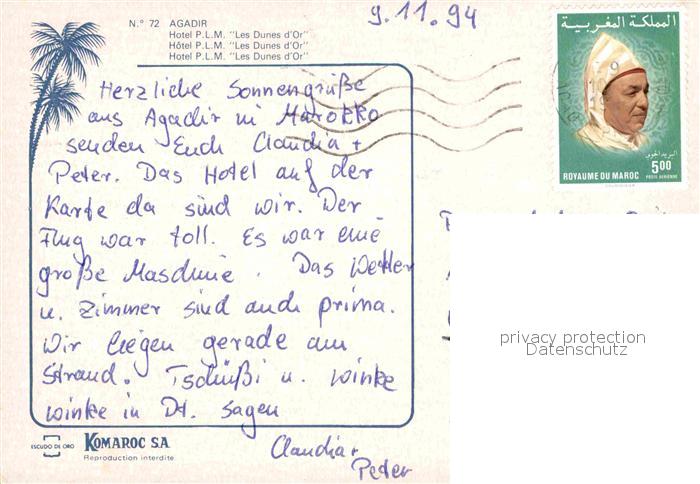 N.º 72 AGADIR
Hotel P.L.M. "Les Dunes d'Or"
Hôtel P.L.M. "Les Dunes d'Or"
Hotel P.L.M. "Les Dunes d'Or"
9.11.94
المملكة المغربية
البريد الجوي
5,00
ROYAUME DU MAROC
POSTE AERIENNE
Herzliche Sonnengrüße
aus Agadir in Marokko
senden Euch Claudia +
Peter. Das Hotel auf der
Karte da sind wir. Der
Flug war toll. Es war eine
große Maschine. Das Wetter
u. Zimmer sind auch prima.
Wir liegen gerade am
Strand. Tschüßi u. winke
winke in Dt. sagen
Claudia +
Peter
privacy protection
Datenschutz
ESCUDO DE ORO
KOMAROC S.A.
Reproduction interdite